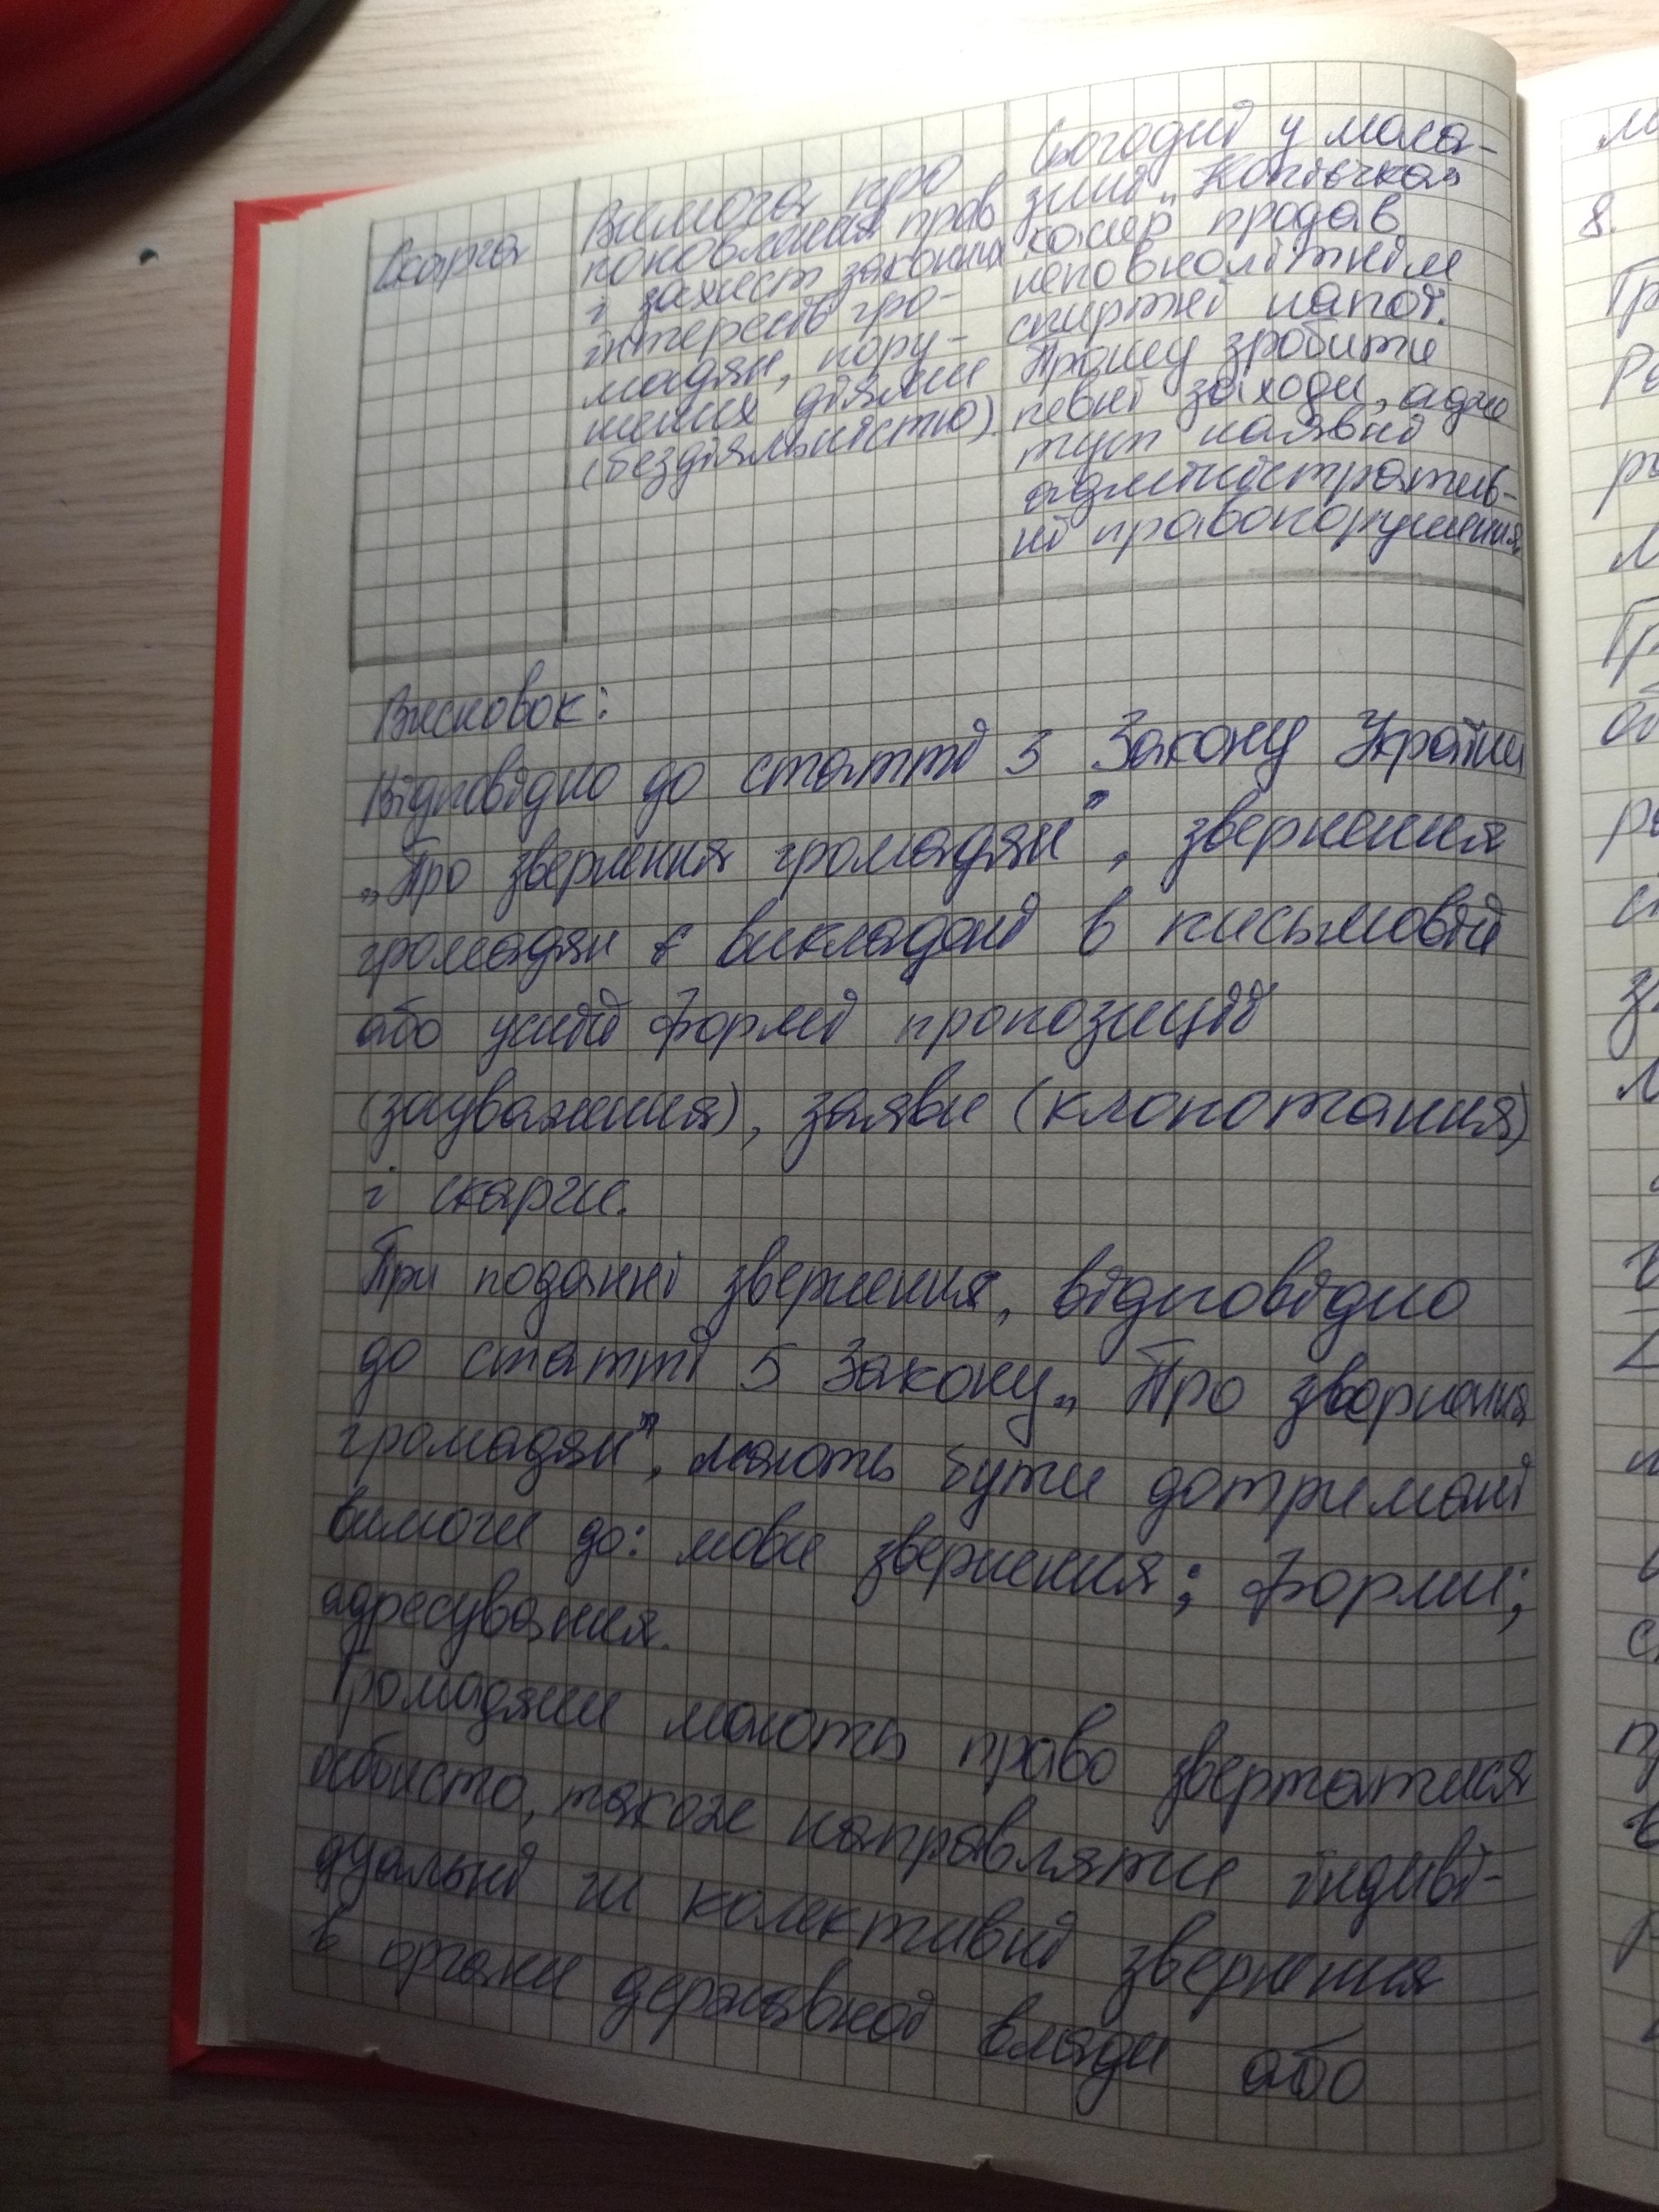 Скарга
Вимога про
поновлення прав
і захист законних
інтересів гро-
мадян, пору-
шених діями
(бездіяльністю).
Сьогодні у мага-
зині „Копієчка"
касир продав
неповнолітнім
спиртні напої.
Прошу зробити
певні заходи, адже
тут наявні
адміністратив-
ні правопорушення
Висновок:
Відповідно до статті 3 Закону України
„Про звернення громадян", звернення
громадян є викладені в письмовій
або усній формі пропозиції
(зауваження), заяви (клопотання)
і скарги.
При поданні звернення, відповідно
до статті 5 Закону „Про звернення
громадян", мають бути дотримані
вимоги до: мови звернення; форми;
адресування.
Громадяни мають право звертатися
особисто, також направляти індиві-
дуальні чи колективні звернення
в органи державної влади або
8.